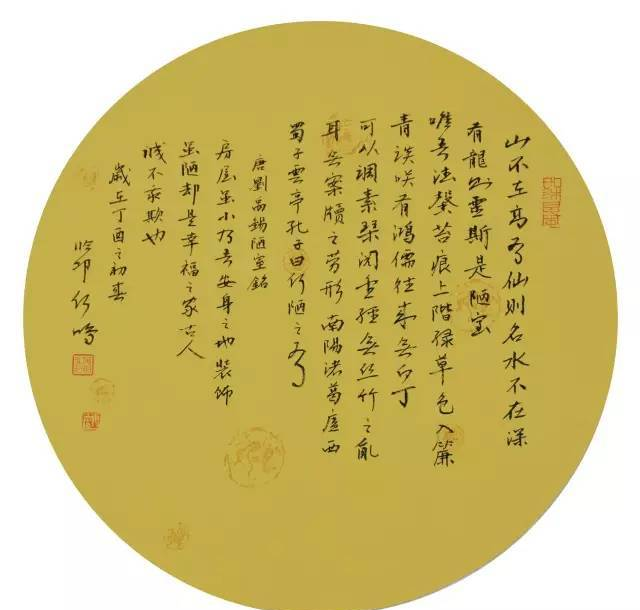 山不在高有仙则名水不在深
有龍则靈斯是陋室
唯吾德馨苔痕上階緑草色入簾
青談咲有鸿儒往来無白丁
可以调素琴阅金经無丝竹之亂
耳無案牍之劳形南陽诸葛廬西
蜀子雲亭孔子曰何陋之有
唐劉禹錫陋室銘
房屋虽小乃吾安身之地装飾
虽陋却是幸福之家古人
诚不我欺也
歲在丁酉之初春
临邛